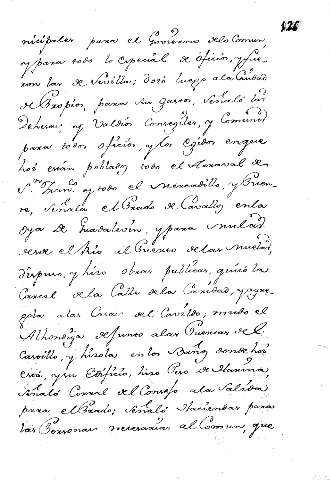 126
nicipales para el Govierno de lo Comun,
y para todo lo especial de oficios, y fue-
ron las de Sevilla; Dotó luego a la Ciudad
de Propios, para sus gastos, Señaló
Dehesas, y Valdios Consegiles, y Comunes
para todos oficios, y los Egidos en que
hoi están poblados todo el Arraval de
Sn. Franco. y todo el Mercadillo, y Puen-
te, Señala el Prado de Cavallos en la
oya de Guadalevin, y para
desde el Rio el Puerto de las
Dispuso, y hizo obras publicas, quitó la
Carcel de la Calle de la Caridad, y agre-
gola a las Casas del Cavildo; mudó el
Alhondiga de junto a las Puertas del
Castillo, y hizola en los donde hoi
está, y su Edificio, hizo Peso de Harina,
Señaló Corral del Consejo a la Salida
para el Prado; Señaló Haciendas para
las Personas necesarias al Comun, que